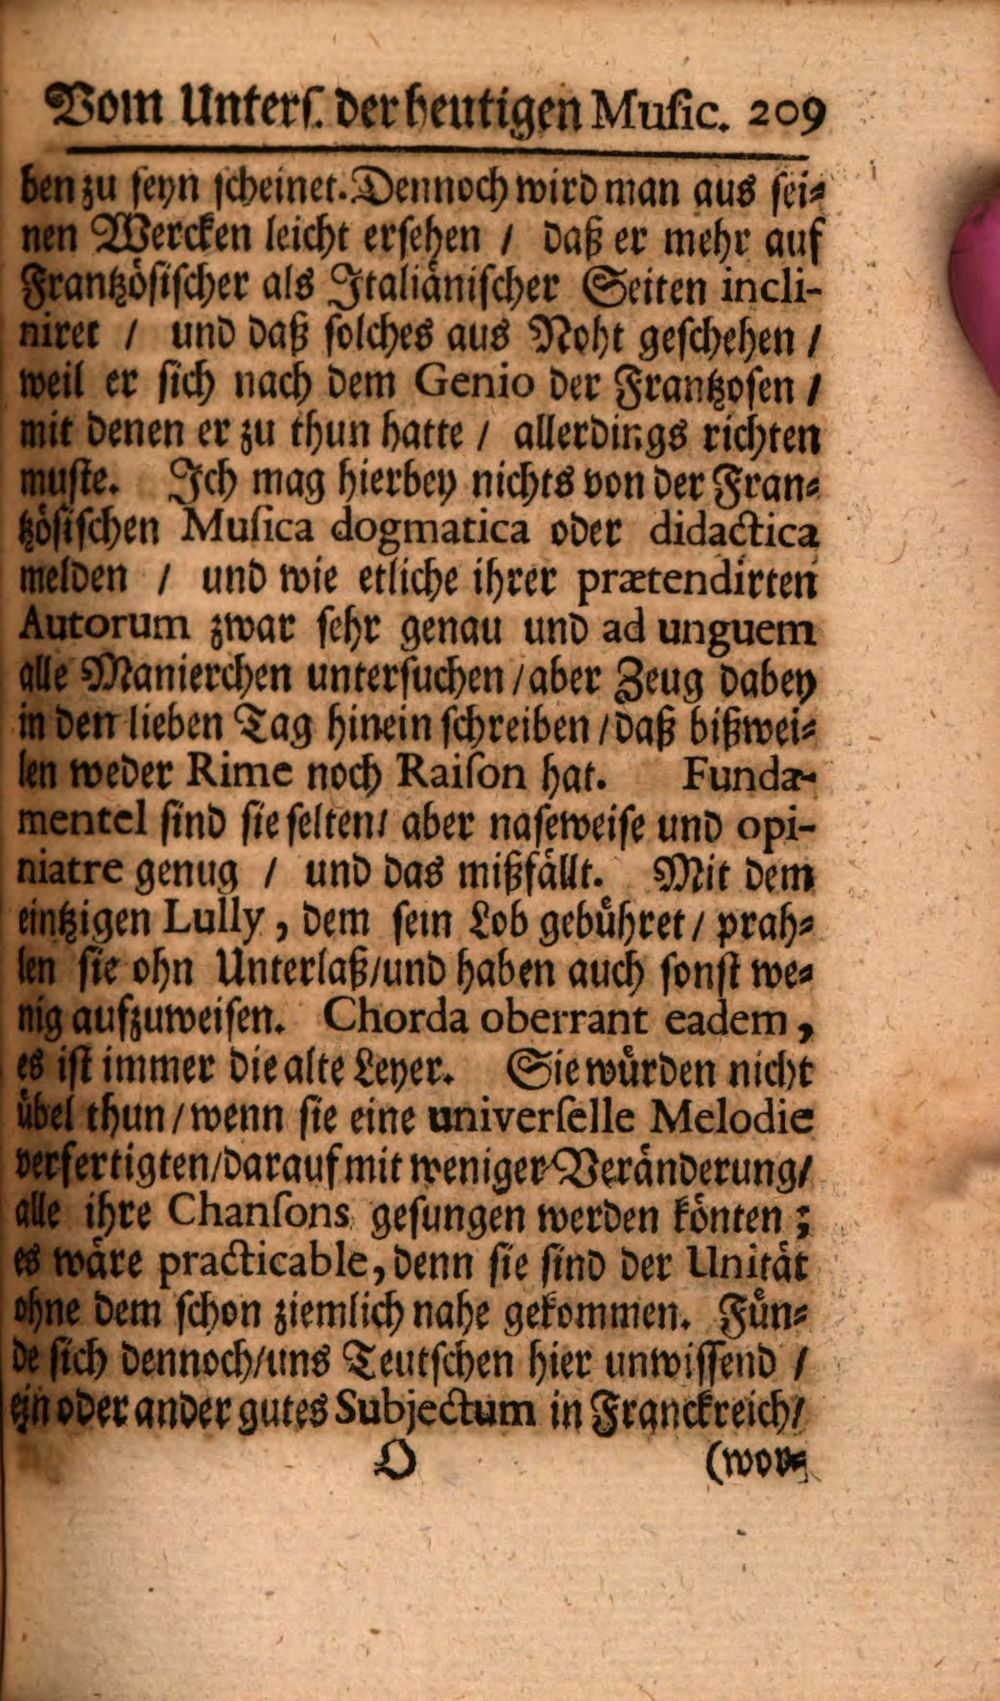 Vom Unters. der heutigen Music. 209
ben zu seyn scheinet. Dennoch wird man aus sei-
nen Wercken leicht ersehen / daß er mehr auf
Frantzösischer als Italiänischer Seiten incli-
niret / und daß solches aus Noht geschehen /
weil er sich nach dem Genio der Frantzosen /
mit denen er zu thun hatte / allerdings richten
muste. Ich mag hierbey nichts von der Fran-
tzösischen Musica dogmatica oder didactica
melden / und wie etliche ihrer prætendirten
Autorum zwar sehr genau und ad unguem
alle Manierchen untersuchen / aber Zeug dabey
in den lieben Tag hinein schreiben / daß bißwei-
len weder Rime noch Raison hat. Funda-
mentel sind sie selten / aber naseweise und opi-
niatre genug / und das mißfällt. Mit dem
eintzigen Lully, dem sein Lob gebühret / prah-
len sie ohn Unterlaß / und haben auch sonst we-
nig aufzuweisen. Chorda oberrant eadem,
es ist immer die alte Leyer. Sie würden nicht
übel thun / wenn sie eine universelle Melodie
verfertigten / darauf mit weniger Veränderung /
alle ihre Chansons gesungen werden könten;
es wäre practicable, denn sie sind der Unität
ohne dem schon ziemlich nahe gekommen. Fün-
de sich dennoch / uns Teutschen hier unwissend /
ein oder ander gutes Subjectum in Franckreich /
O (wor-